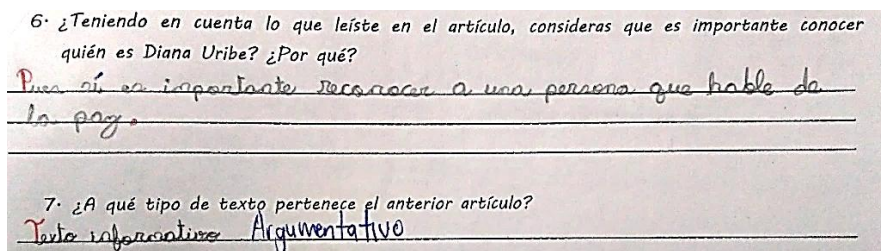 6. ¿Teniendo en cuenta lo que leíste en el artículo, consideras que es importante conocer
quién es Diana Uribe? ¿Por qué?
Pues sí es importante reconocer a una persona que hable de
la paz.
7. ¿A qué tipo de texto pertenece el anterior artículo?
Texto informativo Argumentativo